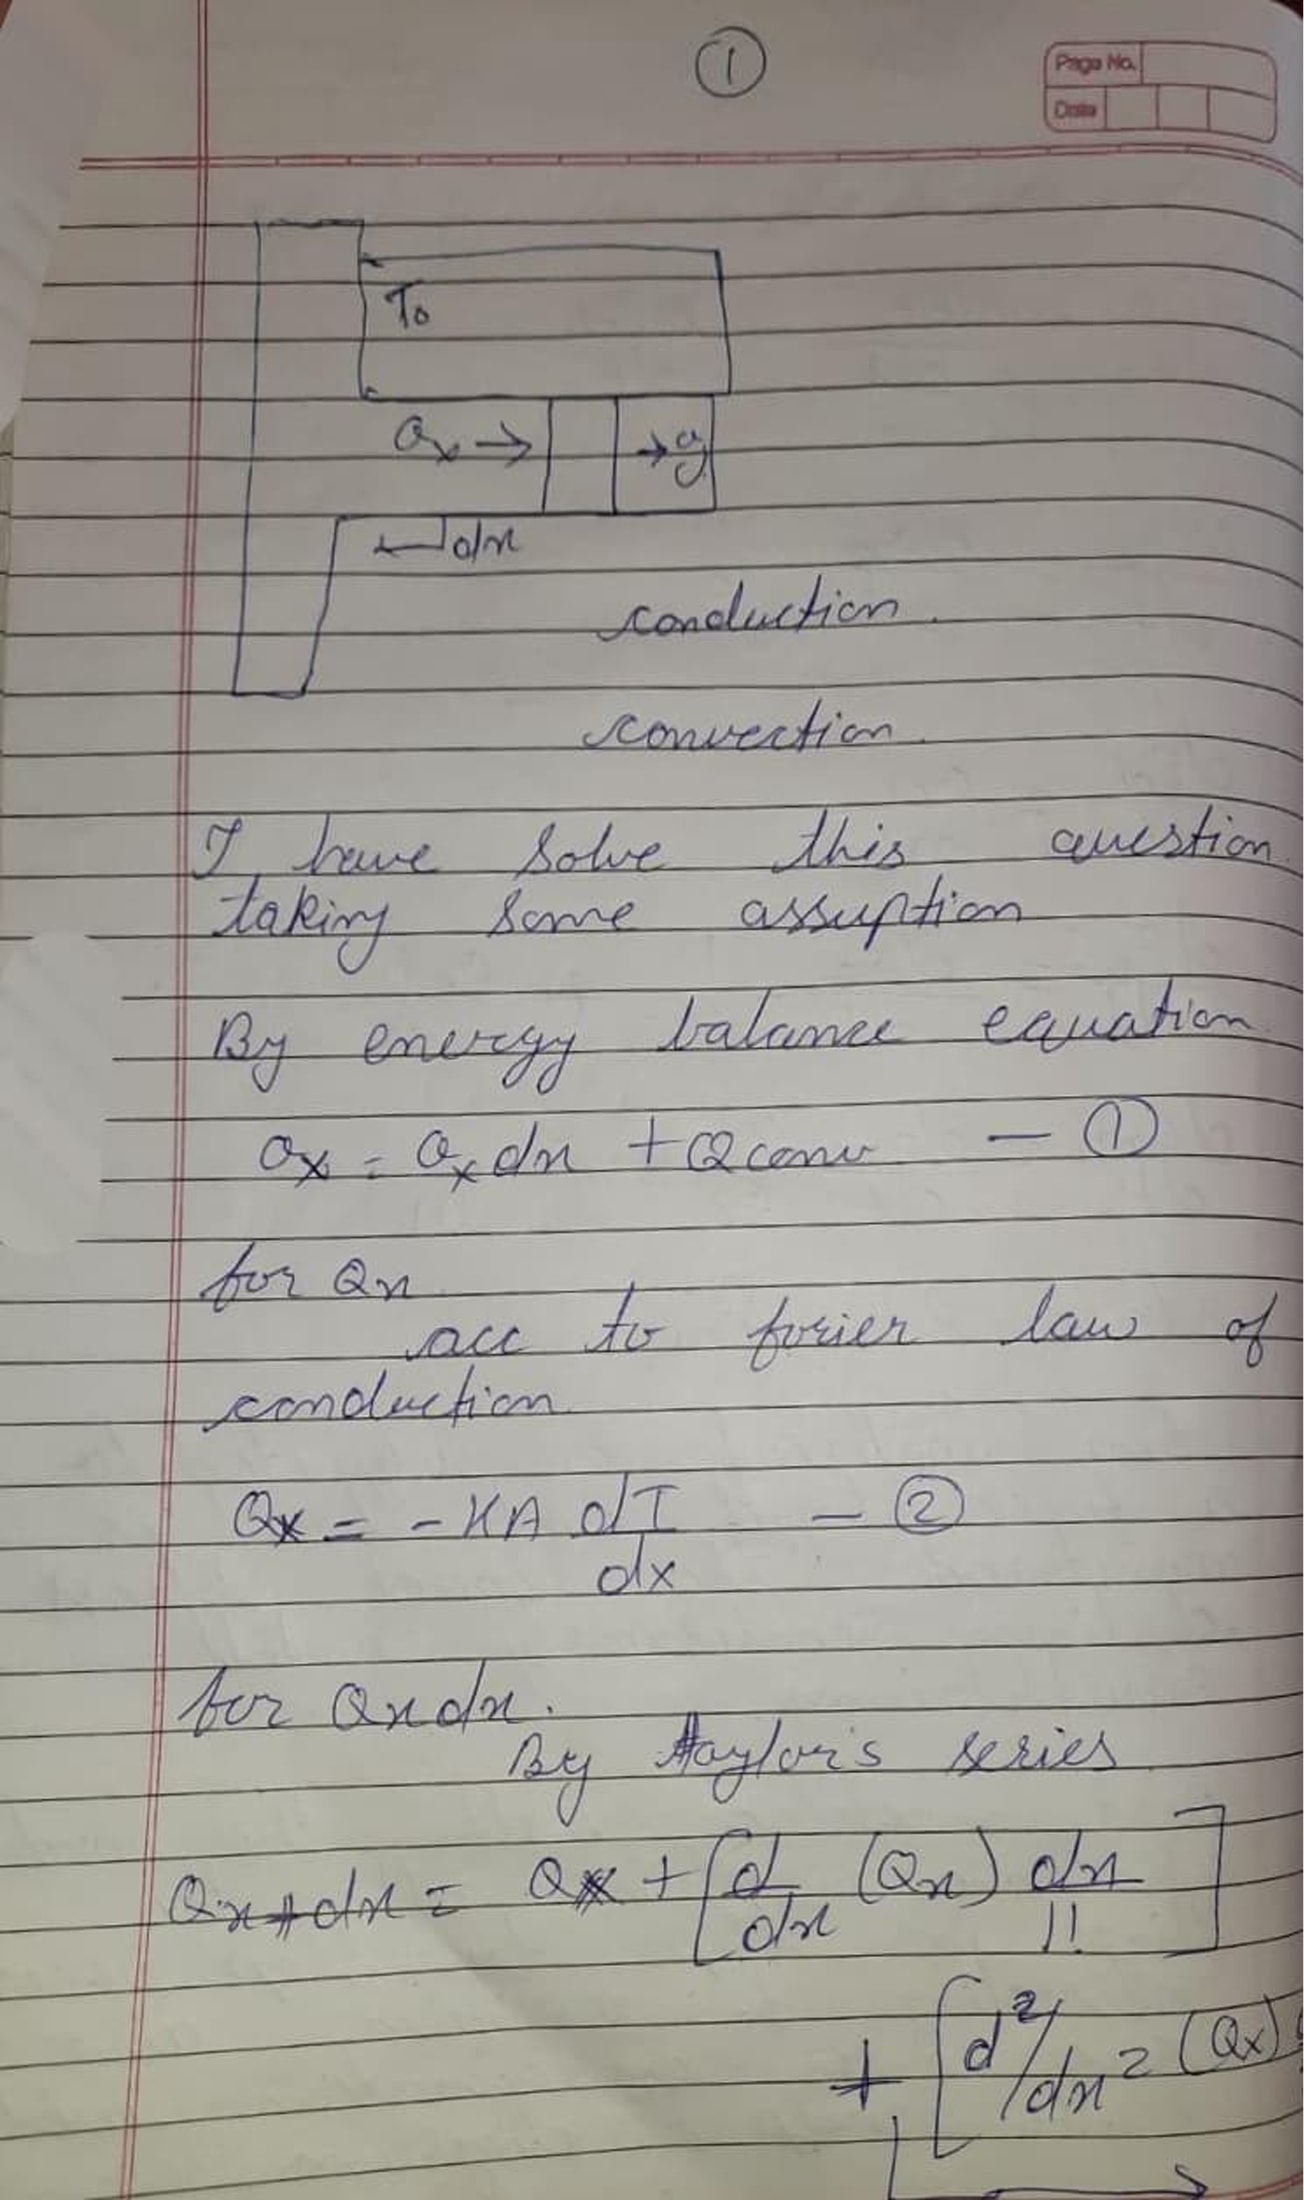 1
Page No.
Date
To
Qx → → y
dx
conduction.
convection.
I have solve this question
taking some assuption
By energy balance equation
Qx = Qx dx + Qconv — 1
for Qx
acc to forier law of
conduction.
Qx = - KA dT/dx — 2
for Qx dx.
By taylor's series
Qx+dx = Qx + [d/dx (Qx) dx/1!]
+ [d²/dx² (Qx)